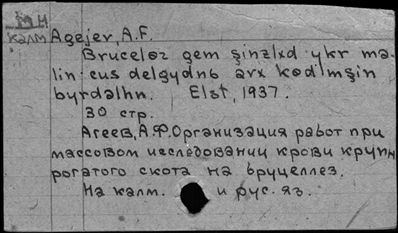 калм Agejev, A.F.
Bruceloz gem şinzlxd ykr ma-
lin cus delgydnь arx kɵdlmşin
byrdəlhn. Elst, 1937.
30 стр.
Агеев, А.Ф. Организация работ при
массовом исследовании крови крупн
рогатого скота на бруцеллез.
На калм. и рус. яз.